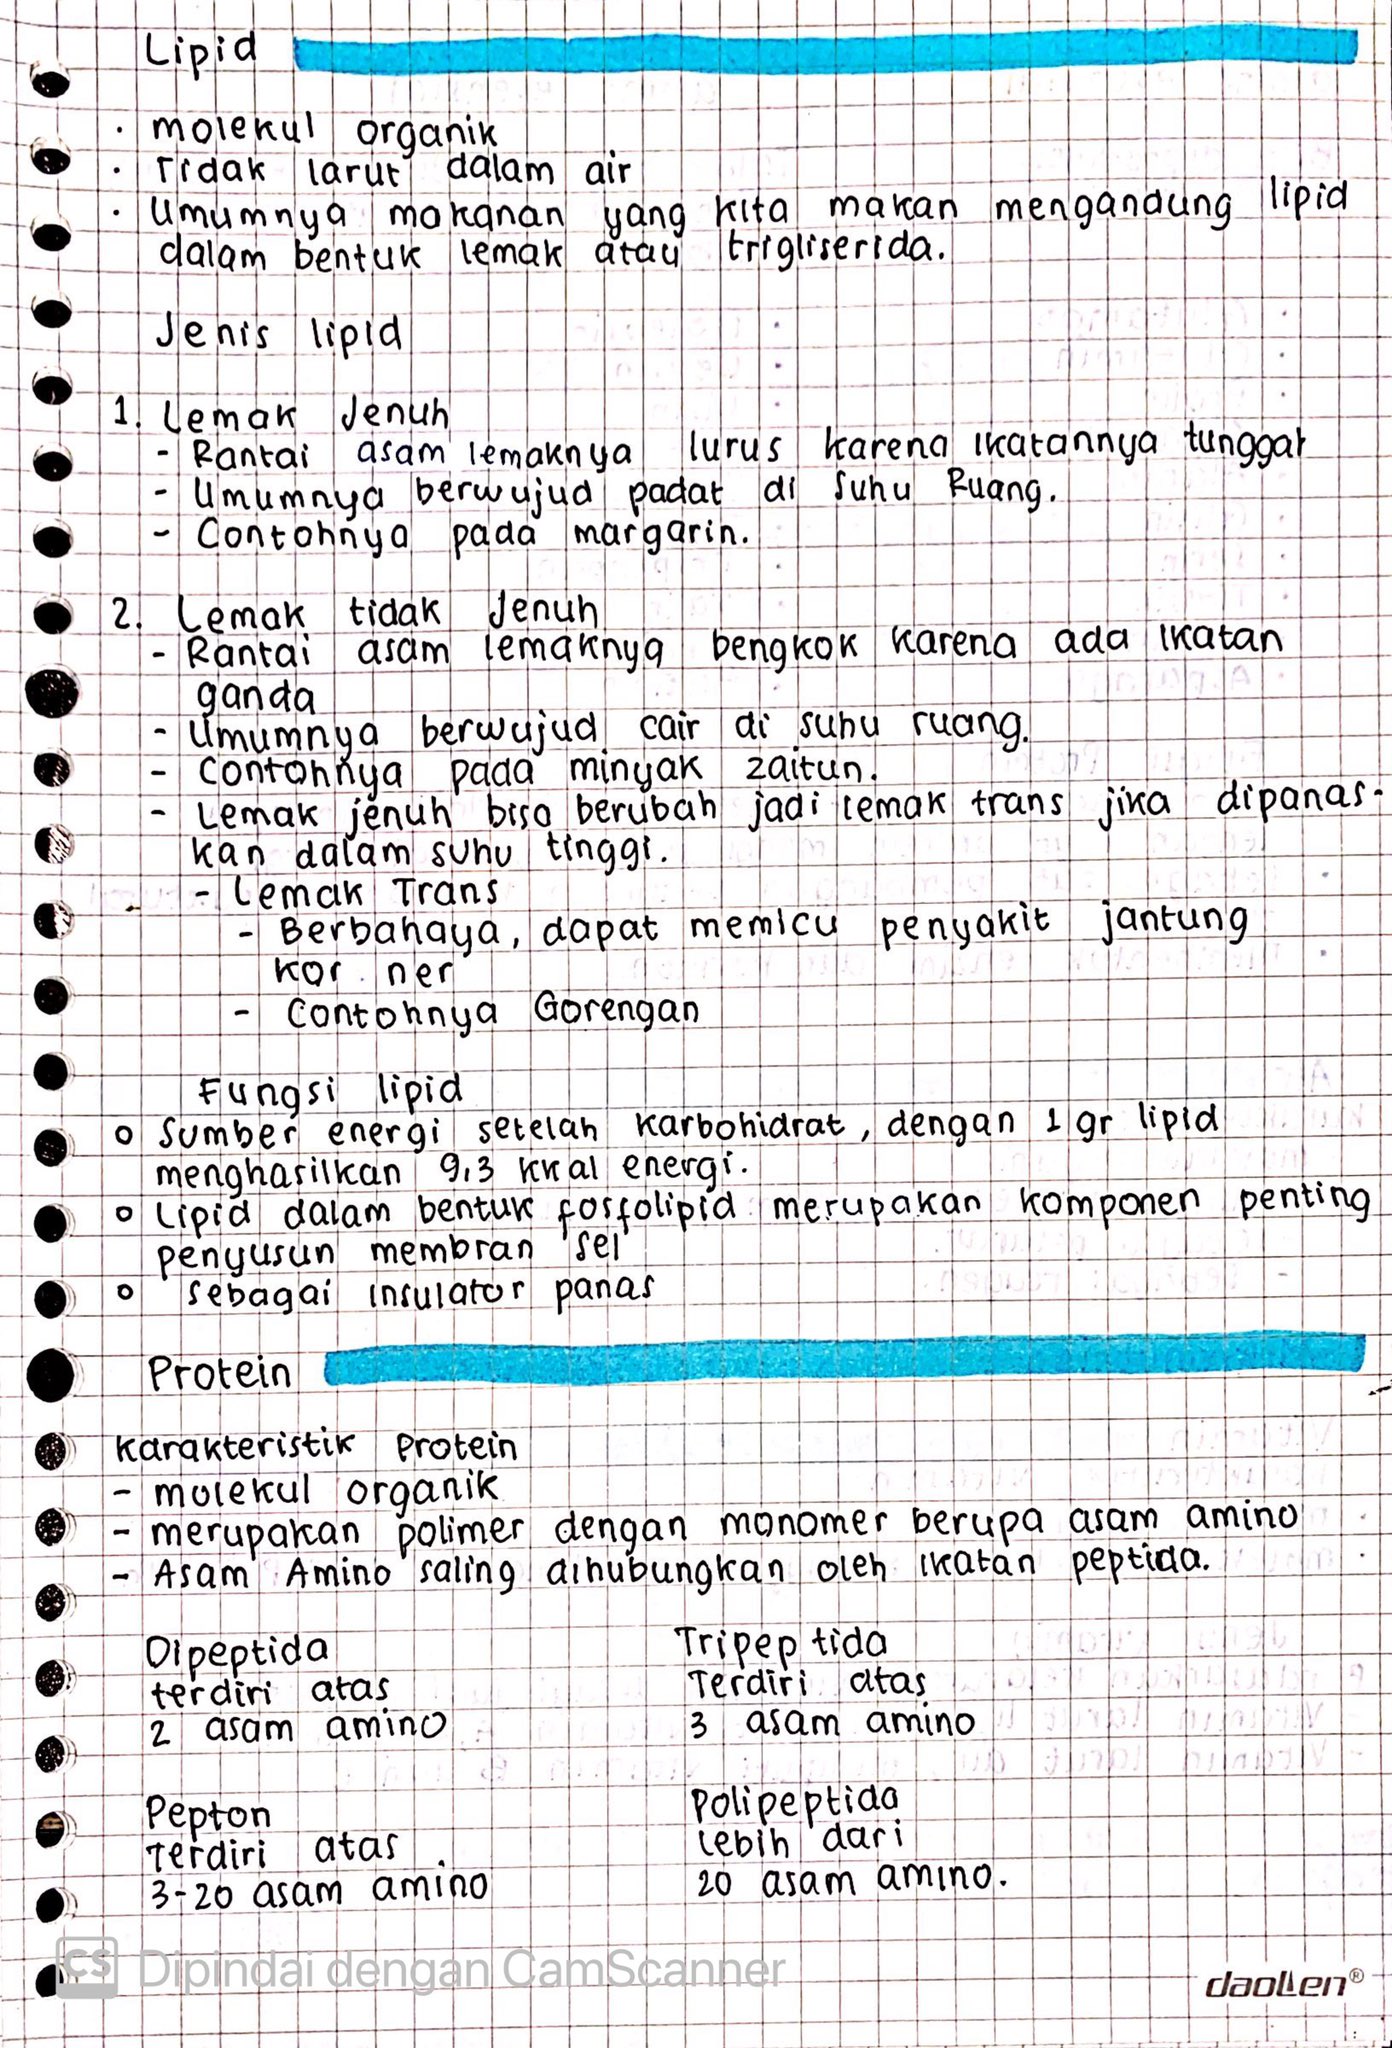 Lipid
· molekul organik
· Tidak larut dalam air
· Umumnya makanan yang kita makan mengandung lipid
dalam bentuk lemak atau trigliserida.
Jenis lipid
1. Lemak Jenuh
- Rantai asam lemaknya lurus karena ikatannya tunggal
- Umumnya berwujud padat di suhu Ruang.
- Contohnya pada margarin.
2. Lemak tidak Jenuh
- Rantai asam lemaknya bengkok karena ada ikatan
ganda
- Umumnya berwujud cair di suhu ruang.
- Contohnya pada minyak zaitun.
- Lemak jenuh bisa berubah jadi lemak trans jika dipanas-
kan dalam suhu tinggi.
- Lemak Trans
- Berbahaya, dapat memicu penyakit jantung
kor ner
- Contohnya Gorengan
Fungsi lipid
o Sumber energi setelah karbohidrat, dengan 1 gr lipid
menghasilkan 9,3 kkal energi.
o Lipid dalam bentuk fosfolipid merupakan komponen penting
penyusun membran sel
o sebagai insulator panas
Protein
Karakteristik Protein
- molekul organik
- merupakan polimer dengan monomer berupa asam amino
- Asam Amino saling dihubungkan oleh ikatan peptida.
Dipeptida
terdiri atas
2 asam amino
Tripeptida
Terdiri atas
3 asam amino
Pepton
Terdiri atas
3-20 asam amino
Polipeptida
Lebih dari
20 asam amino.
CS Dipindai dengan CamScanner
daollen®